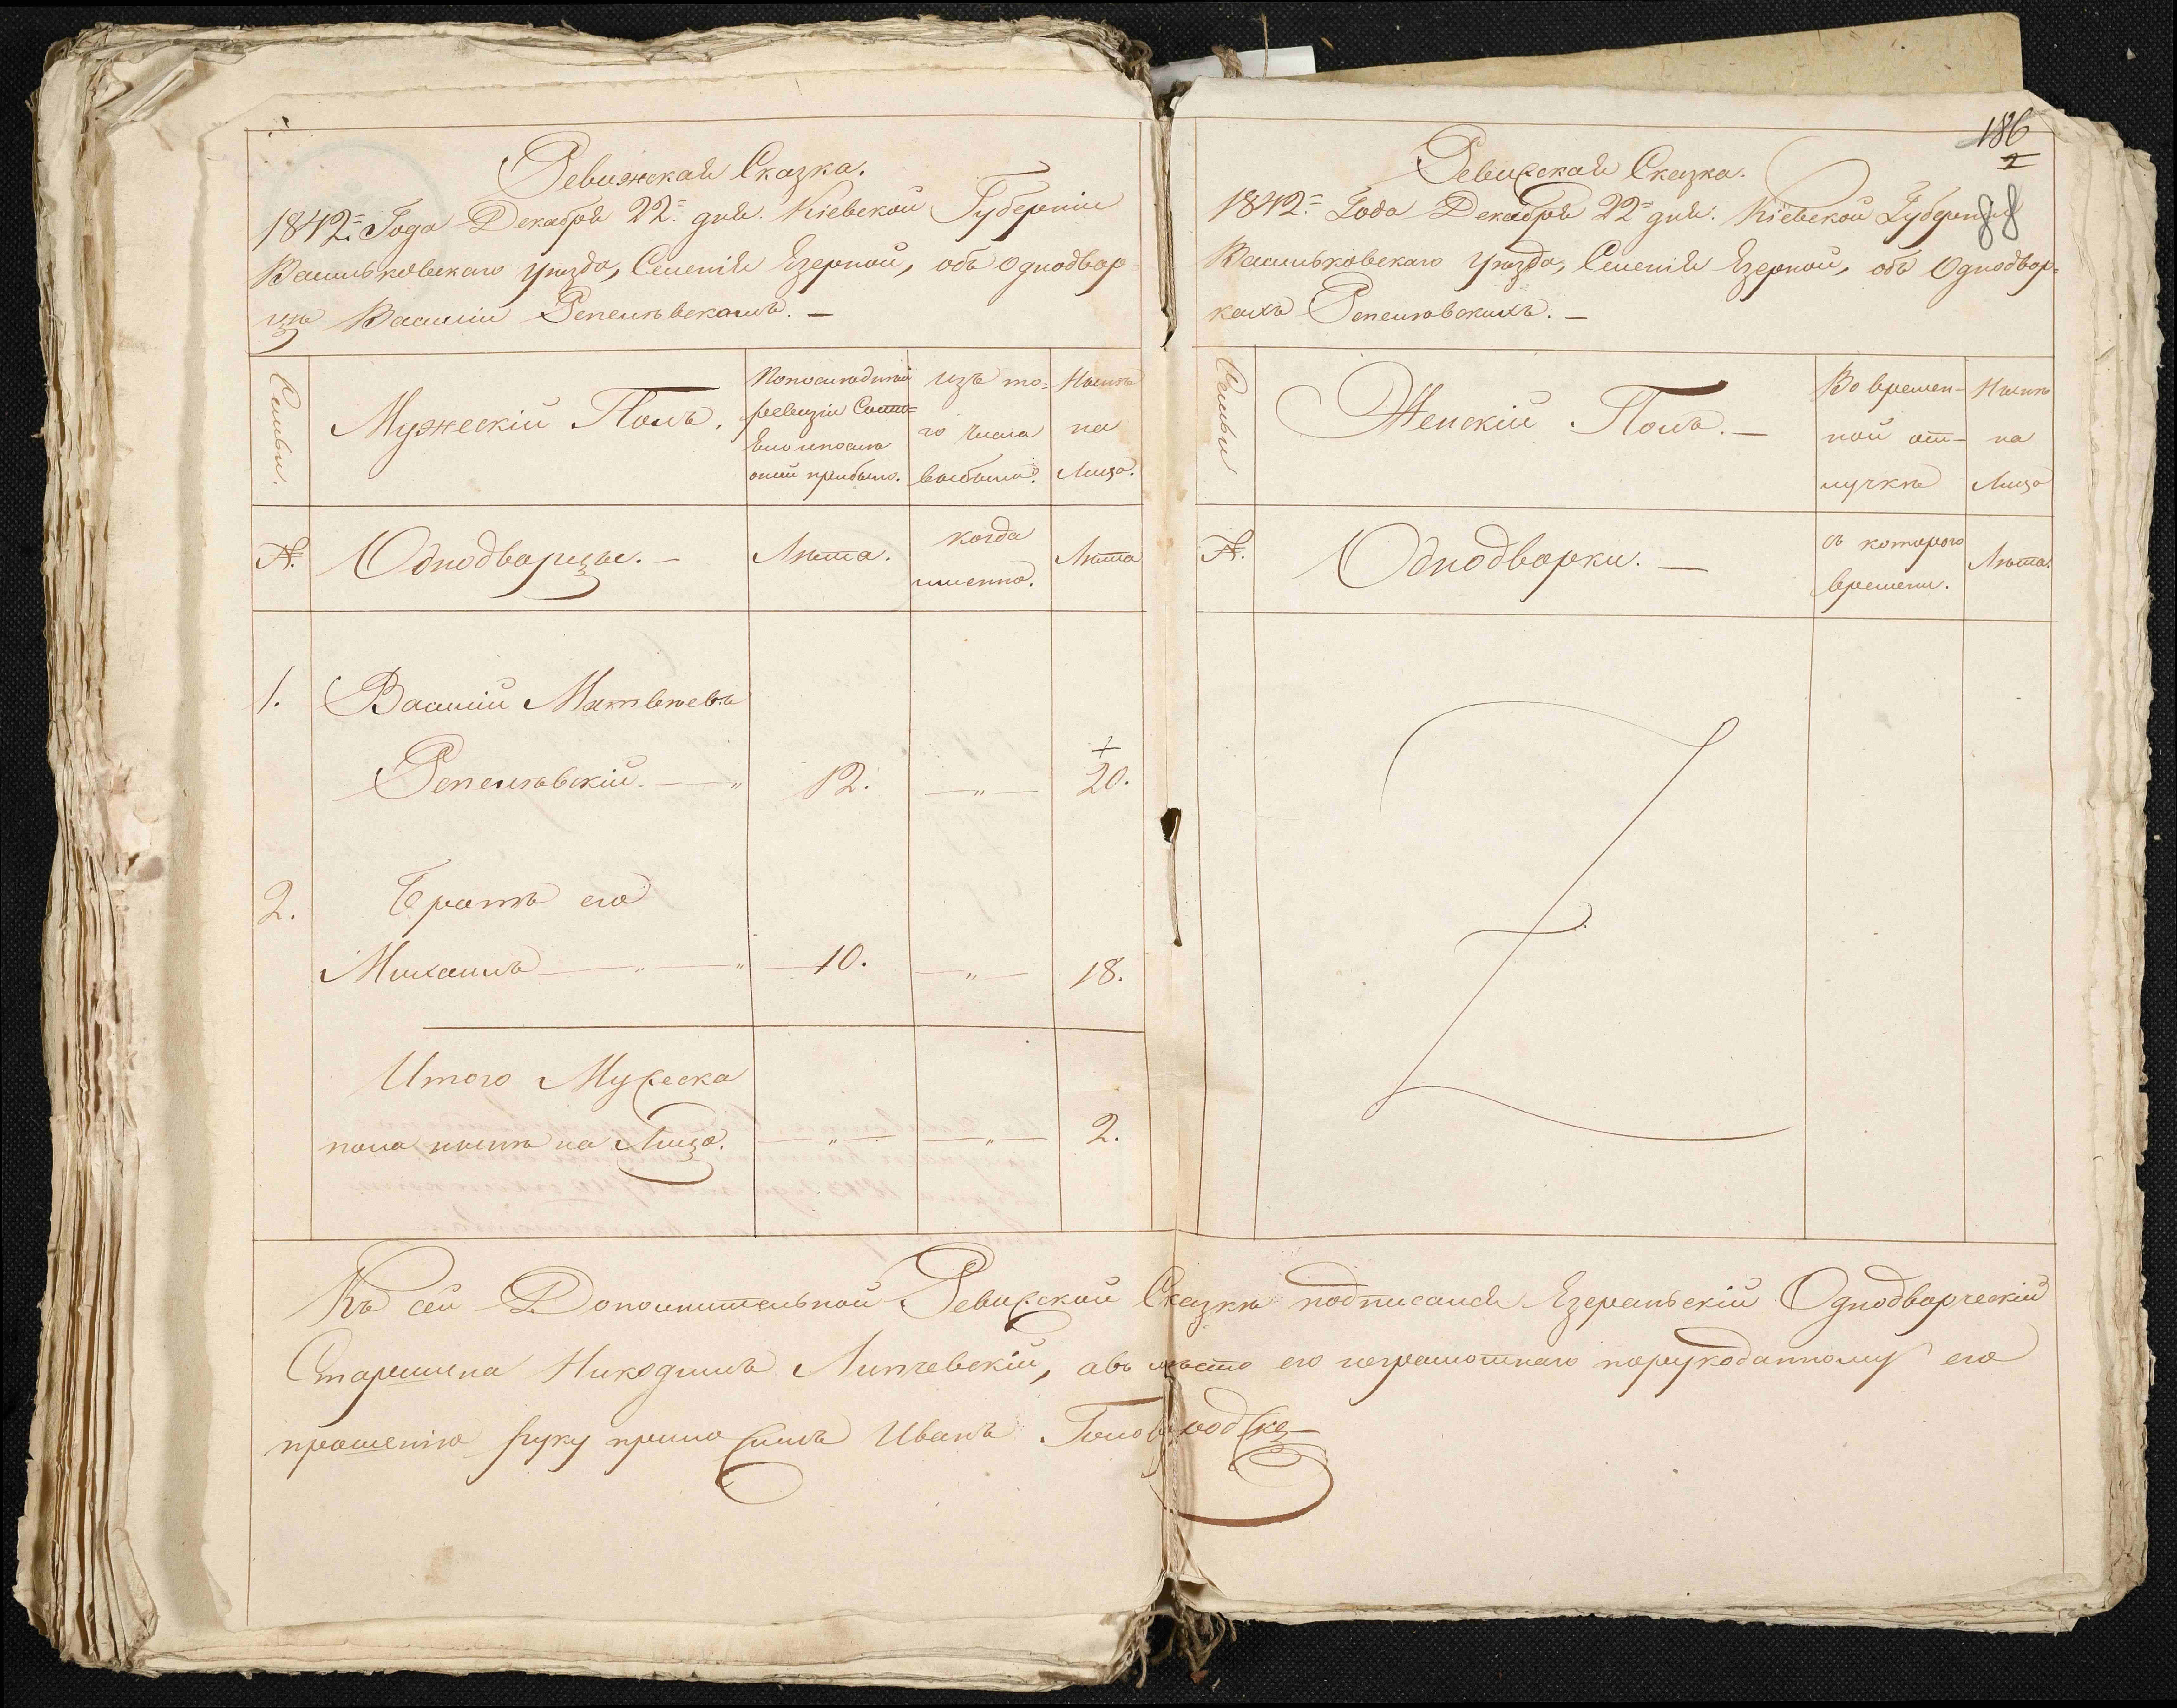 Ревижская Сказка.
1842.= Года Декабря 22.= дня. Кіевской Губерніи
Васильковскаго уѣзда, Селенія Езерной, объ однодвор
цѣ Василіи Репелѣвскомъ. —
Семьи.
Мужескій Полъ.
По последней
ревизіи Состо=
яло и после
оной прибыло.
изъ то=
го числа
выбыло.
Ныне
на
Лицо.
№.
Однодворцы. —
Лѣта.
когда
именно.
Лѣта
1.
Василій Матвѣевъ
Репелѣвскій. — „
12.
— „ —
+
20.
2.
Братъ его
Михаилъ — „ — „
10.
— „ —
18.
Итого Мужеска
пола ныне на Лицо.
— „ —
— „ —
2.
186
88
Ревижская Сказка.
1842.= Года Декабря 22= дня: Кіевской Губерніи
Васильковскаго уѣзда, Селенія Езерной, объ Однодвор=
кахъ Репелѣвскихъ. —
Семьи
Женскій Полъ. —
Во времен-
ной от-
лучкѣ
Ныне
на
Лицо
№.
Однодворки. —
съ котораго
времени.
Лѣта.
Къ сей Дополнительной Ревижской Сказкѣ подписался Езеранскій Однодворческій
Старшина Никодимъ Липчевскій, а въ место его неграмотнаго по рукоданному его
прошенію руку приложилъ Иванъ